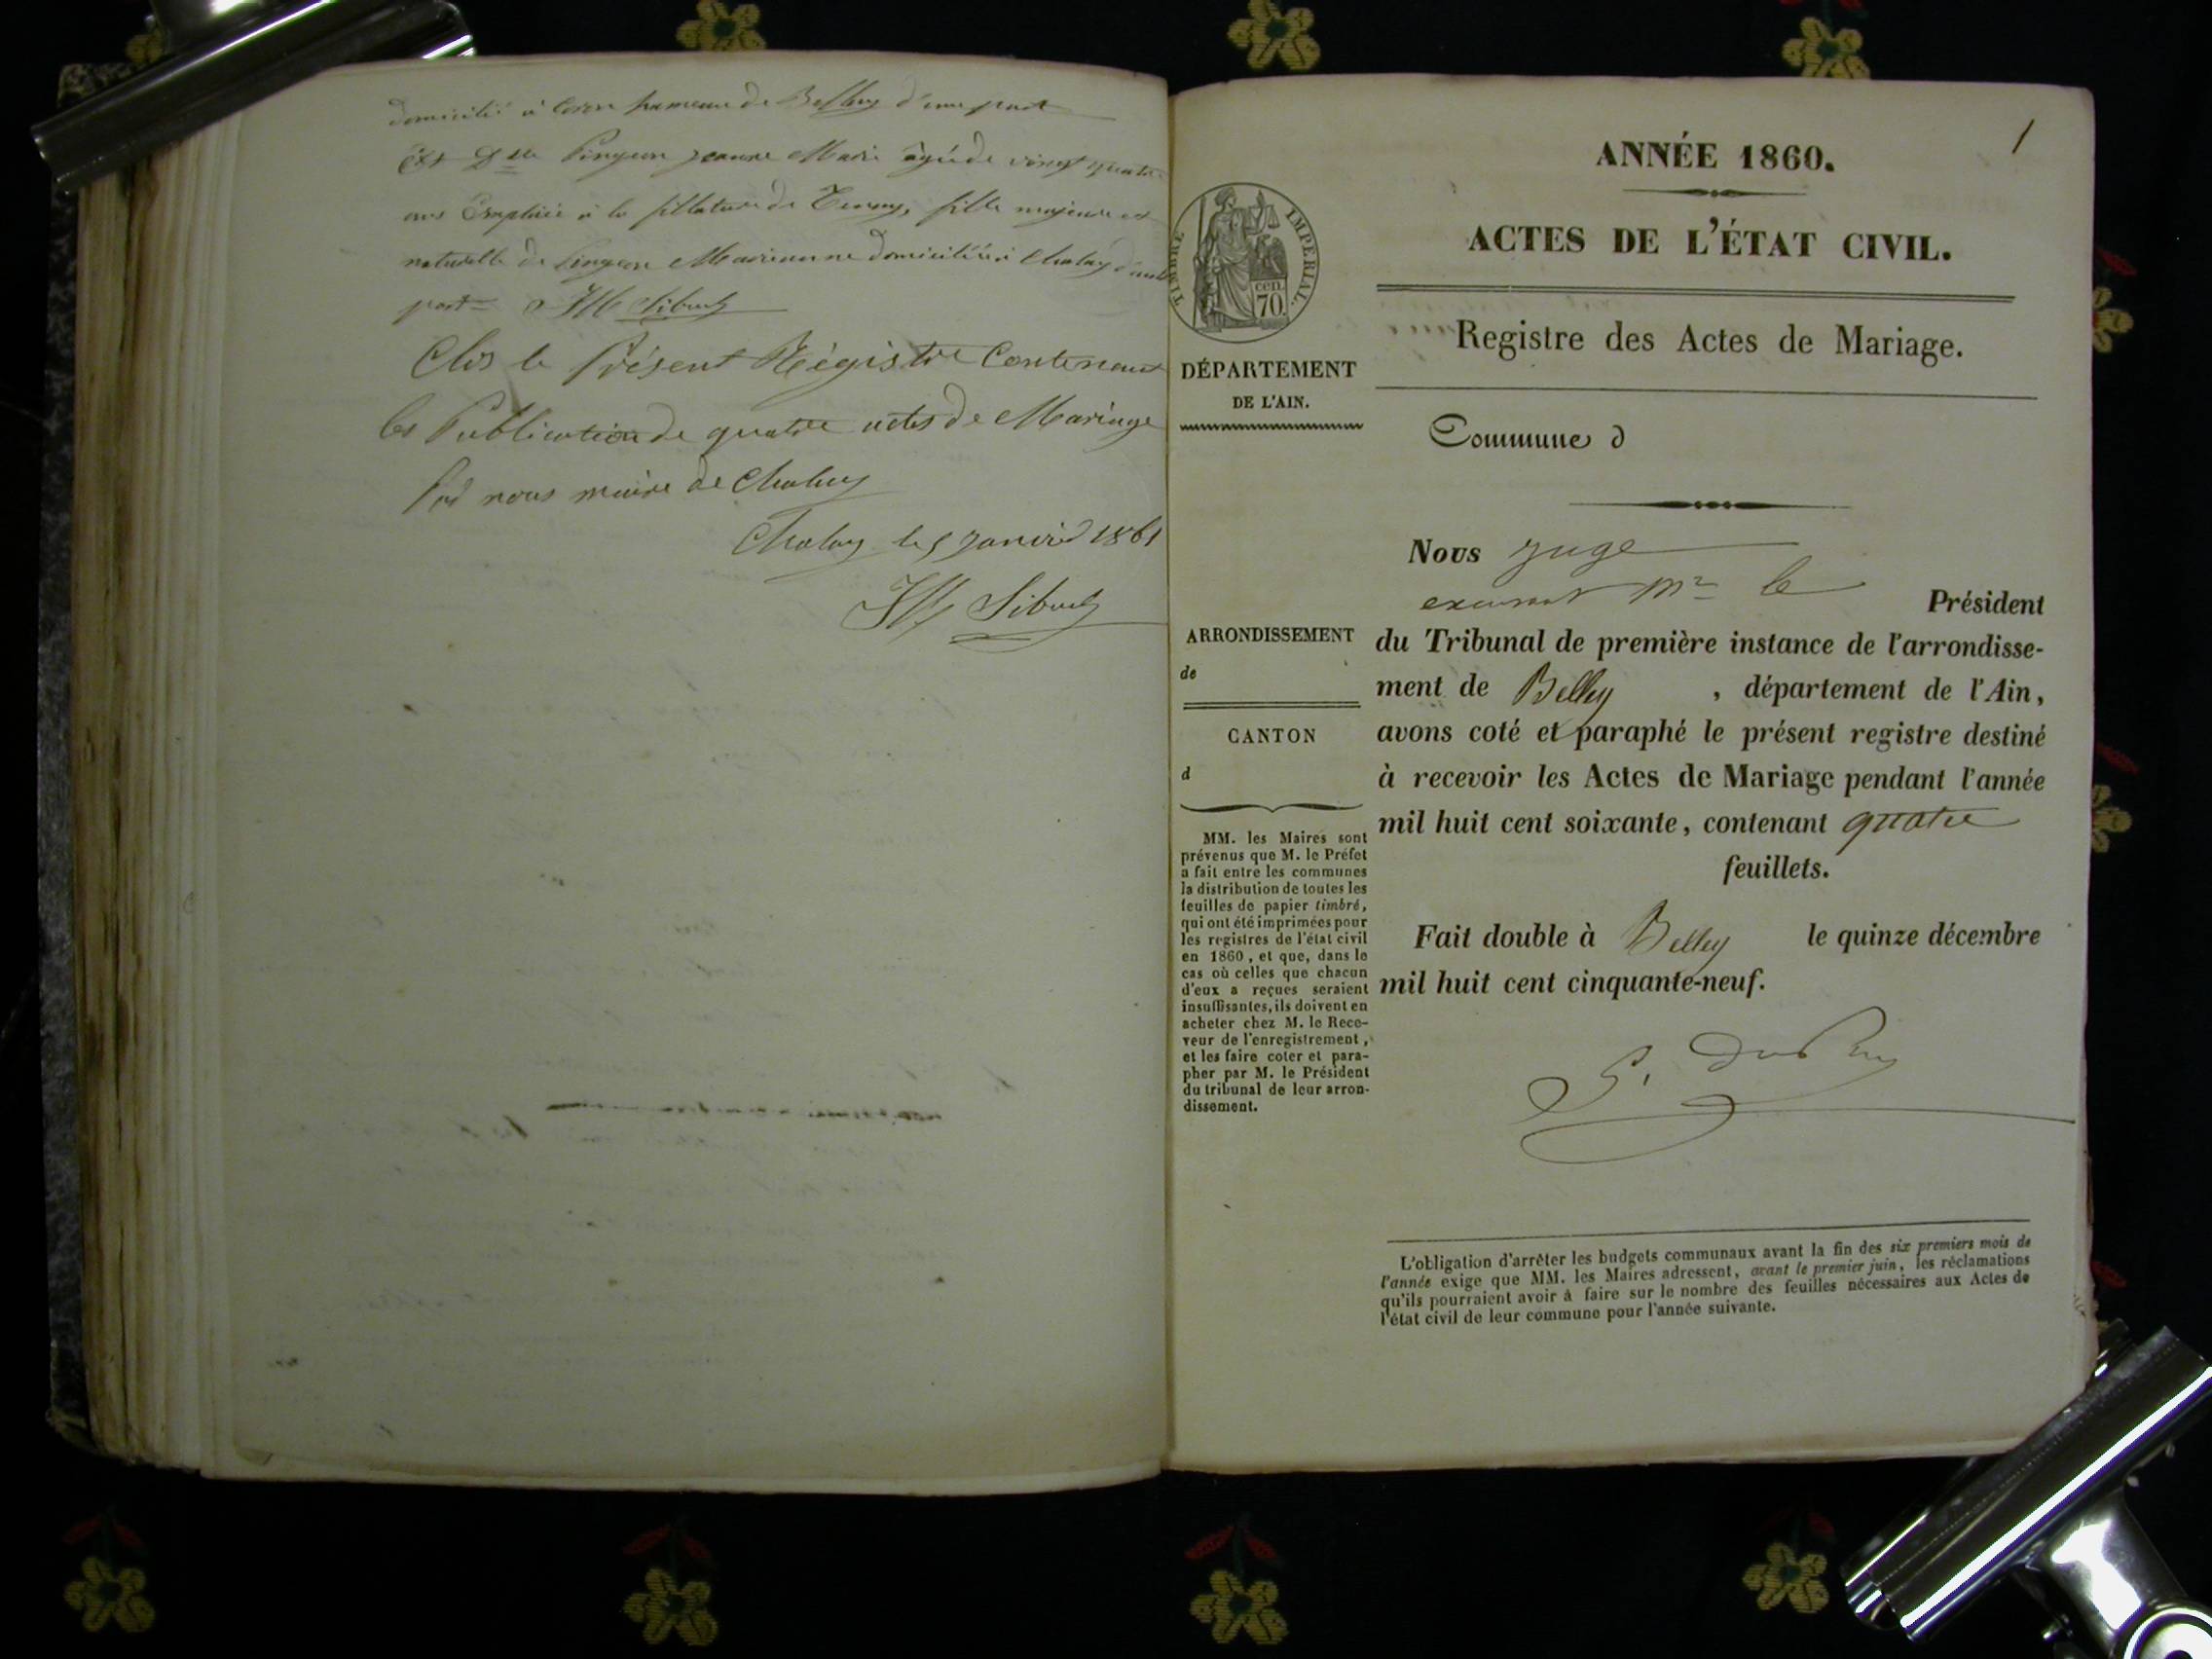 domicilié à Coron hameau de Belley d'une part
Et Dlle Pingeon jeanne Marie âgé de vingt quatre
ans Emploiée à la fillature de Tenay, fille majeure et
naturelle de Pingeon Marianne domiciliée à Chaley d'autre
part
Clos le Présent Régistre Contenant
les Publication de quatre actes de Mariage
Par nous maire de Chaley
Chaley le 5 janvier 1861
1
ANNÉE 1860.
ACTES DE L'ÉTAT CIVIL.
TIMBRE IMPÉRIAL.
CEN.
70.
Registre des Actes de Mariage.
DÉPARTEMENT
DE L'AIN.
Commune d
ARRONDISSEMENT
de
CANTON
d
MM. les Maires sont
prévenus que M. le Préfet
a fait entre les communes
la distribution de toutes les
feuilles de papier timbré,
qui ont été imprimées pour
les registres de l'état civil
en 1860, et que, dans le
cas où celles que chacun
d'eux a reçues seraient
insuffisantes, ils doivent en
acheter chez M. le Rece-
veur de l'enregistrement,
et les faire coter et para-
pher par M. le Président
du tribunal de leur arron-
dissement.
Nous juge
excusant Mr le Président
du Tribunal de première instance de l'arrondisse-
ment de Belley, département de l'Ain,
avons coté et paraphé le présent registre destiné
à recevoir les Actes de Mariage pendant l'année
mil huit cent soixante, contenant quatre
feuillets.
Fait double à Belley le quinze décembre
mil huit cent cinquante-neuf.
L'obligation d'arrêter les budgets communaux avant la fin des six premiers mois de
l'année exige que MM. les Maires adressent, avant le premier juin, les réclamations
qu'ils pourraient avoir à faire sur le nombre des feuilles nécessaires aux Actes de
l'état civil de leur commune pour l'année suivante.